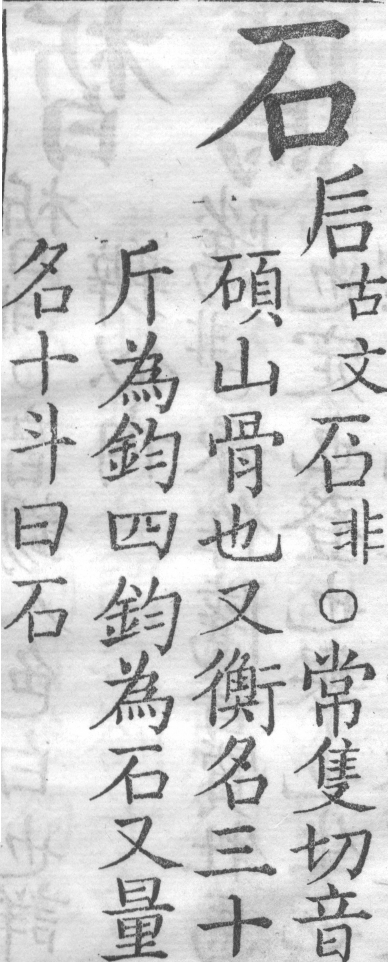 石
古文非○常隻切音
碩山骨也又衡名三十
斤為鈞四鈞為石又量
名十斗曰石